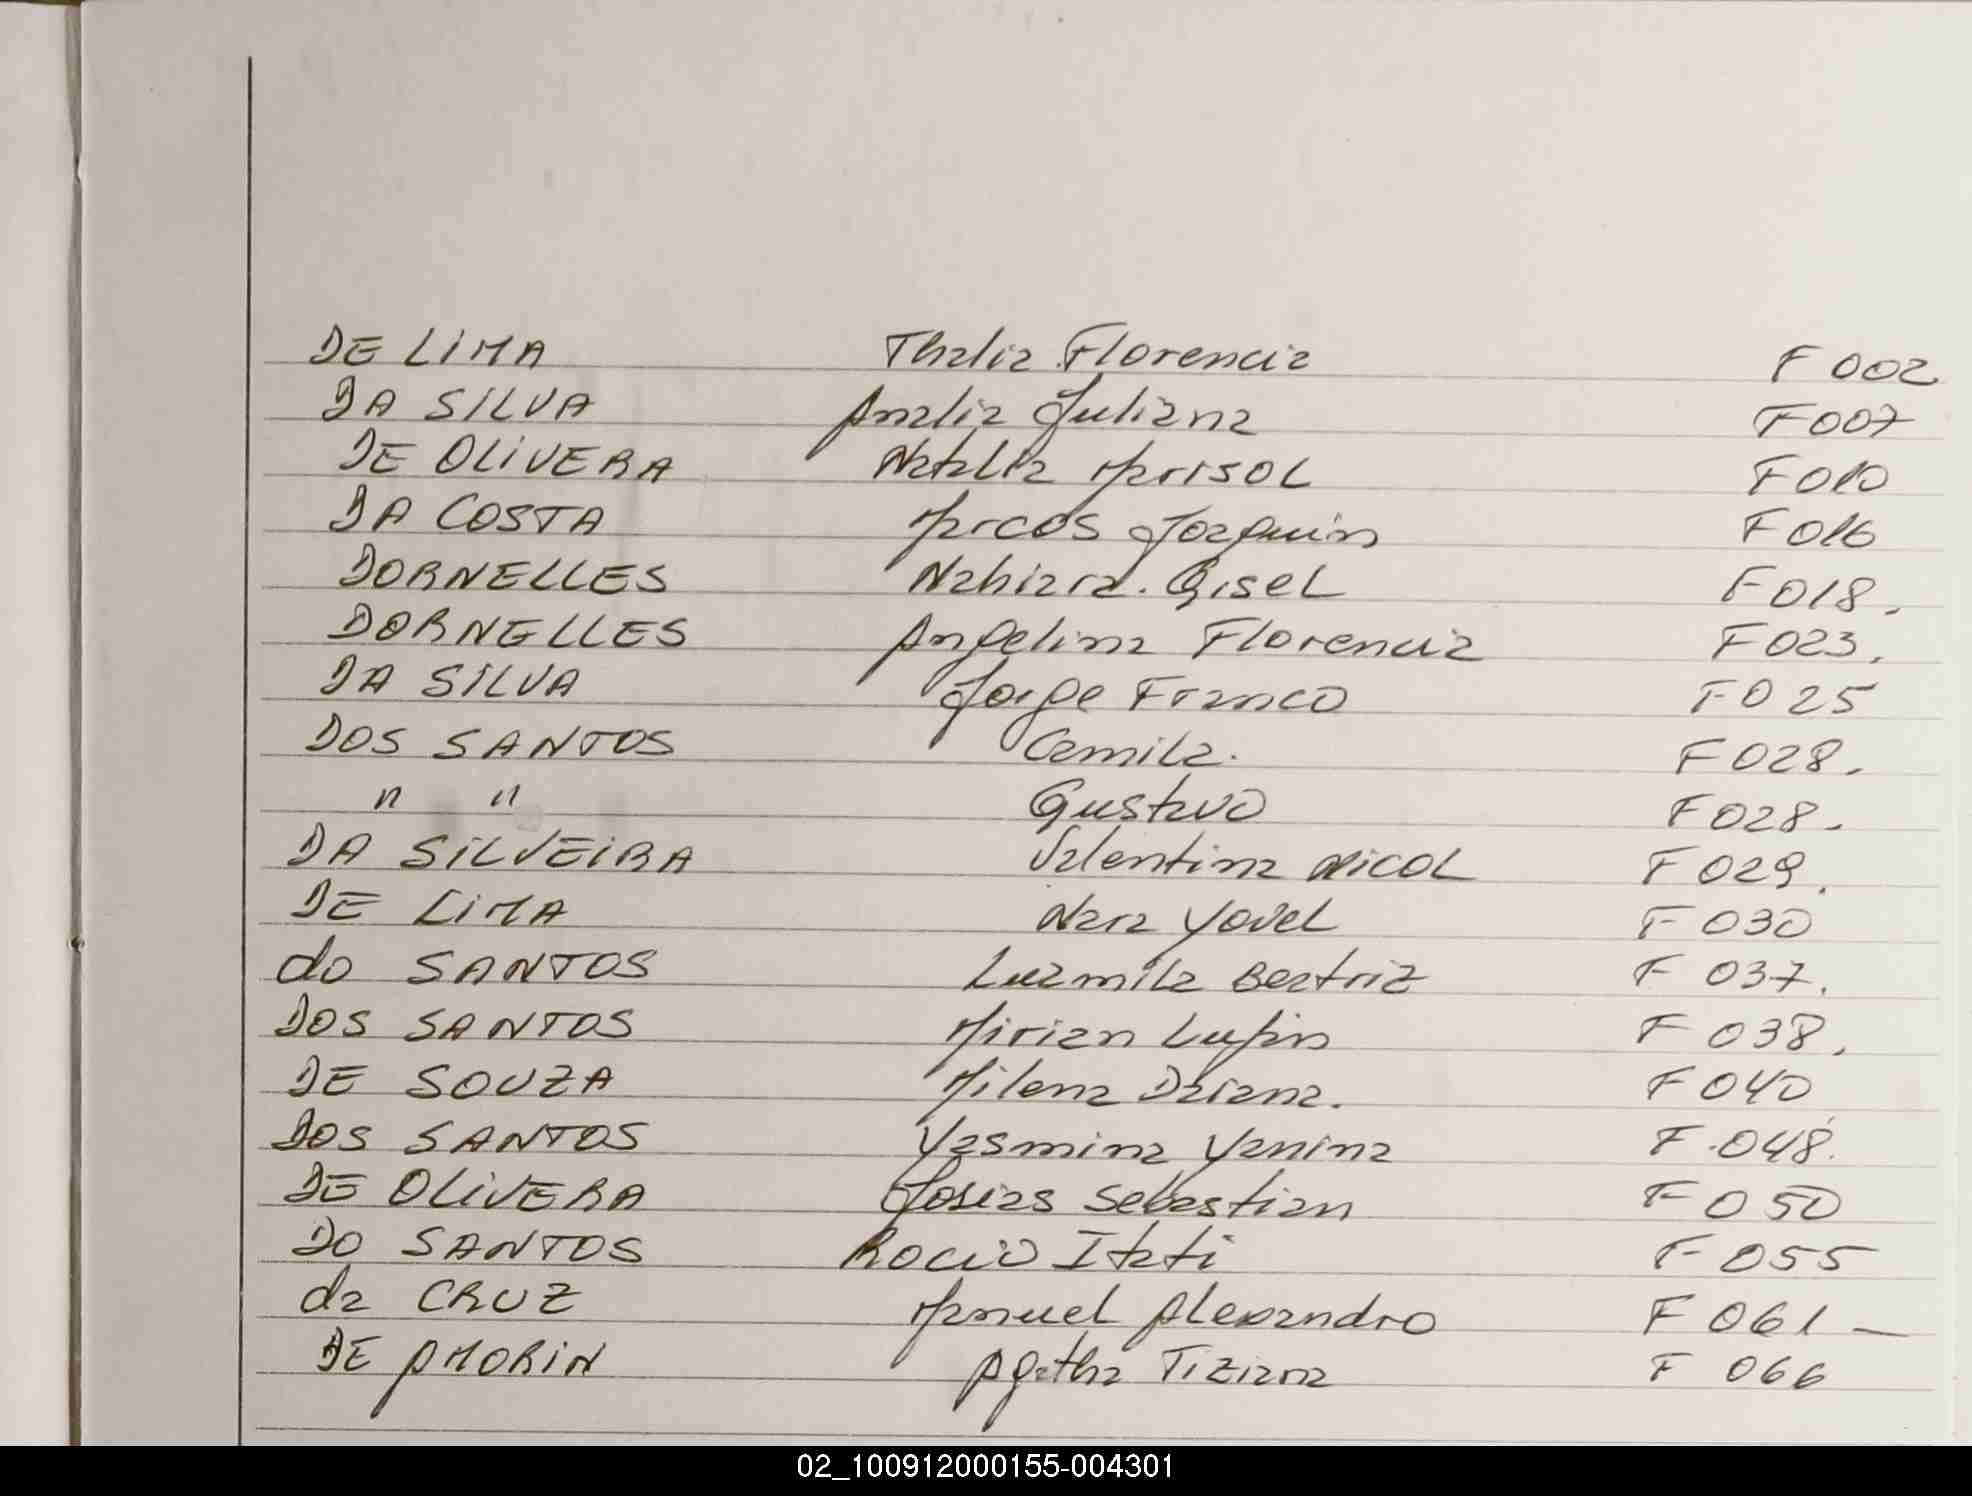 DE LIMA Thalia Florencia F 002
DA SILVA Analia Juliana F007
DE OLIVERA Natalia Marisol F010
DA COSTA Marcos Joaquin F016
DORNELLES Nahiara. Gisel F018.
DORNELLES Angelina Florencia F023.
DA SILVA Jorge Franco F025
DOS SANTOS Camila. F028.
" " Gustavo F028-
DA SILVEIRA Valentina Nicol F029.
DE LIMA Nara F 030
do SANTOS Luzmila Beatriz F 037.
DOS SANTOS Mirian F 038.
DE SOUZA Milena Daiana. F 040
DOS SANTOS Yasmina Yanina F.048.
DE OLIVERA Josias Sebastian F 050
DO SANTOS Rocio Itati F 055
da CRUZ Manuel Alexandro F 061 -
DE AMORIN Agatha Tiziana F 066
02_100912000155-004301